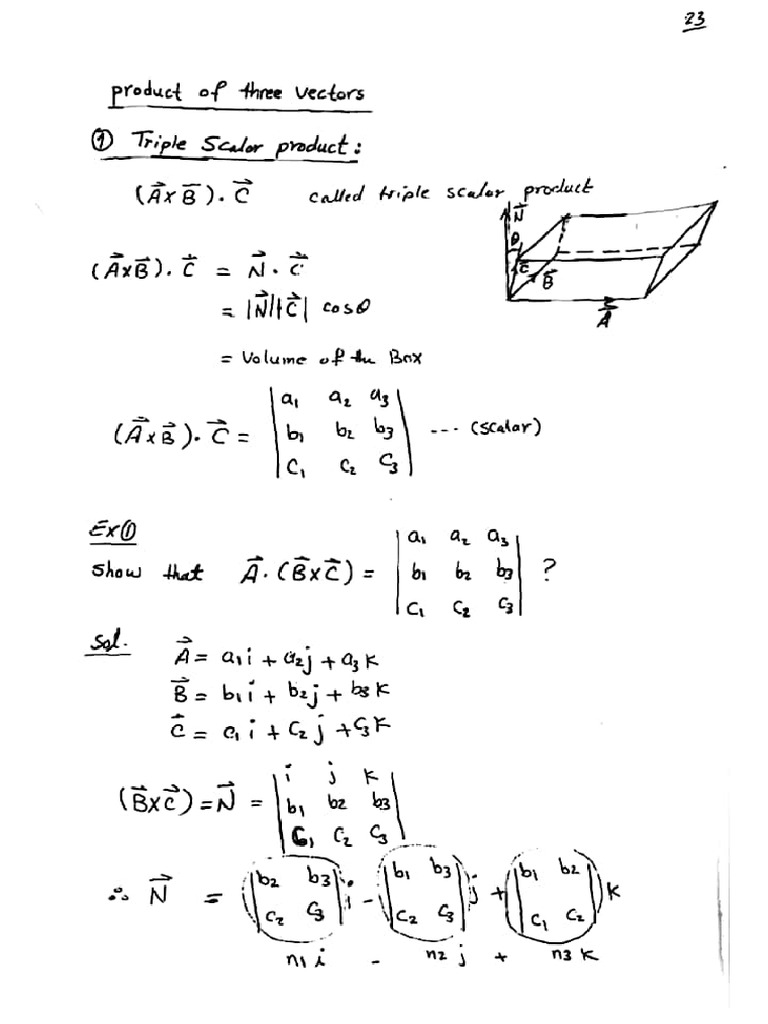 23
product of three vectors
① Triple Scalar product:
(A⃗×B⃗).C⃗ called triple scalar product
N⃗
θ
C⃗
B⃗
A⃗
(A⃗×B⃗).C⃗ = N⃗.C⃗
= |N⃗||C⃗| cosθ
= Volume of the Box
(A⃗×B⃗).C⃗ = | a₁ a₂ a₃ |
| b₁ b₂ b₃ | --- (scalar)
| c₁ c₂ c₃ |
Ex①
Show that A⃗.(B⃗×C⃗) = | a₁ a₂ a₃ |
| b₁ b₂ b₃ | ?
| c₁ c₂ c₃ |
Sol.
A⃗ = a₁i + a₂j + a₃k
B⃗ = b₁i + b₂j + b₃k
C⃗ = c₁i + c₂j + c₃k
(B⃗×C⃗) = N⃗ = | i j k |
| b₁ b₂ b₃ |
| c₁ c₂ c₃ |
∴ N⃗ = | b₂ b₃ | i - | b₁ b₃ | j + | b₁ b₂ | k
| c₂ c₃ | | c₂ c₃ | | c₁ c₂ |
n₁i - n₂j + n₃k